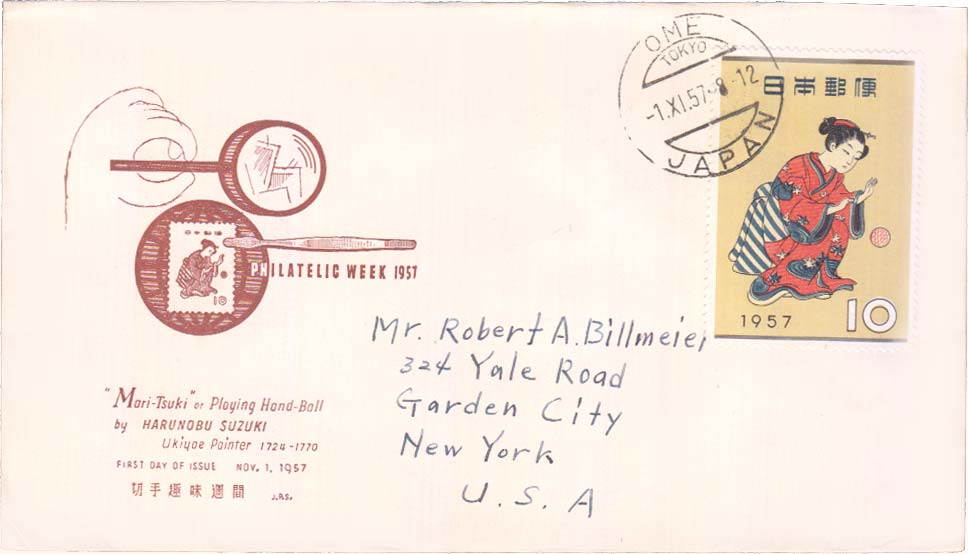 OME
TOKYO
-1.XI.57-8-12
JAPAN
日本郵便
1957
10
日本郵便
10
PHILATELIC WEEK 1957
Mr. Robert A. Billmeier
324 Yale Road
Garden City
New York
U. S. A
"Mari-Tsuki" or Playing Hand-Ball
by HARUNOBU SUZUKI
Ukiyoe Painter 1724-1770
FIRST DAY OF ISSUE NOV. 1, 1957
切手趣味週間 J.P.S.